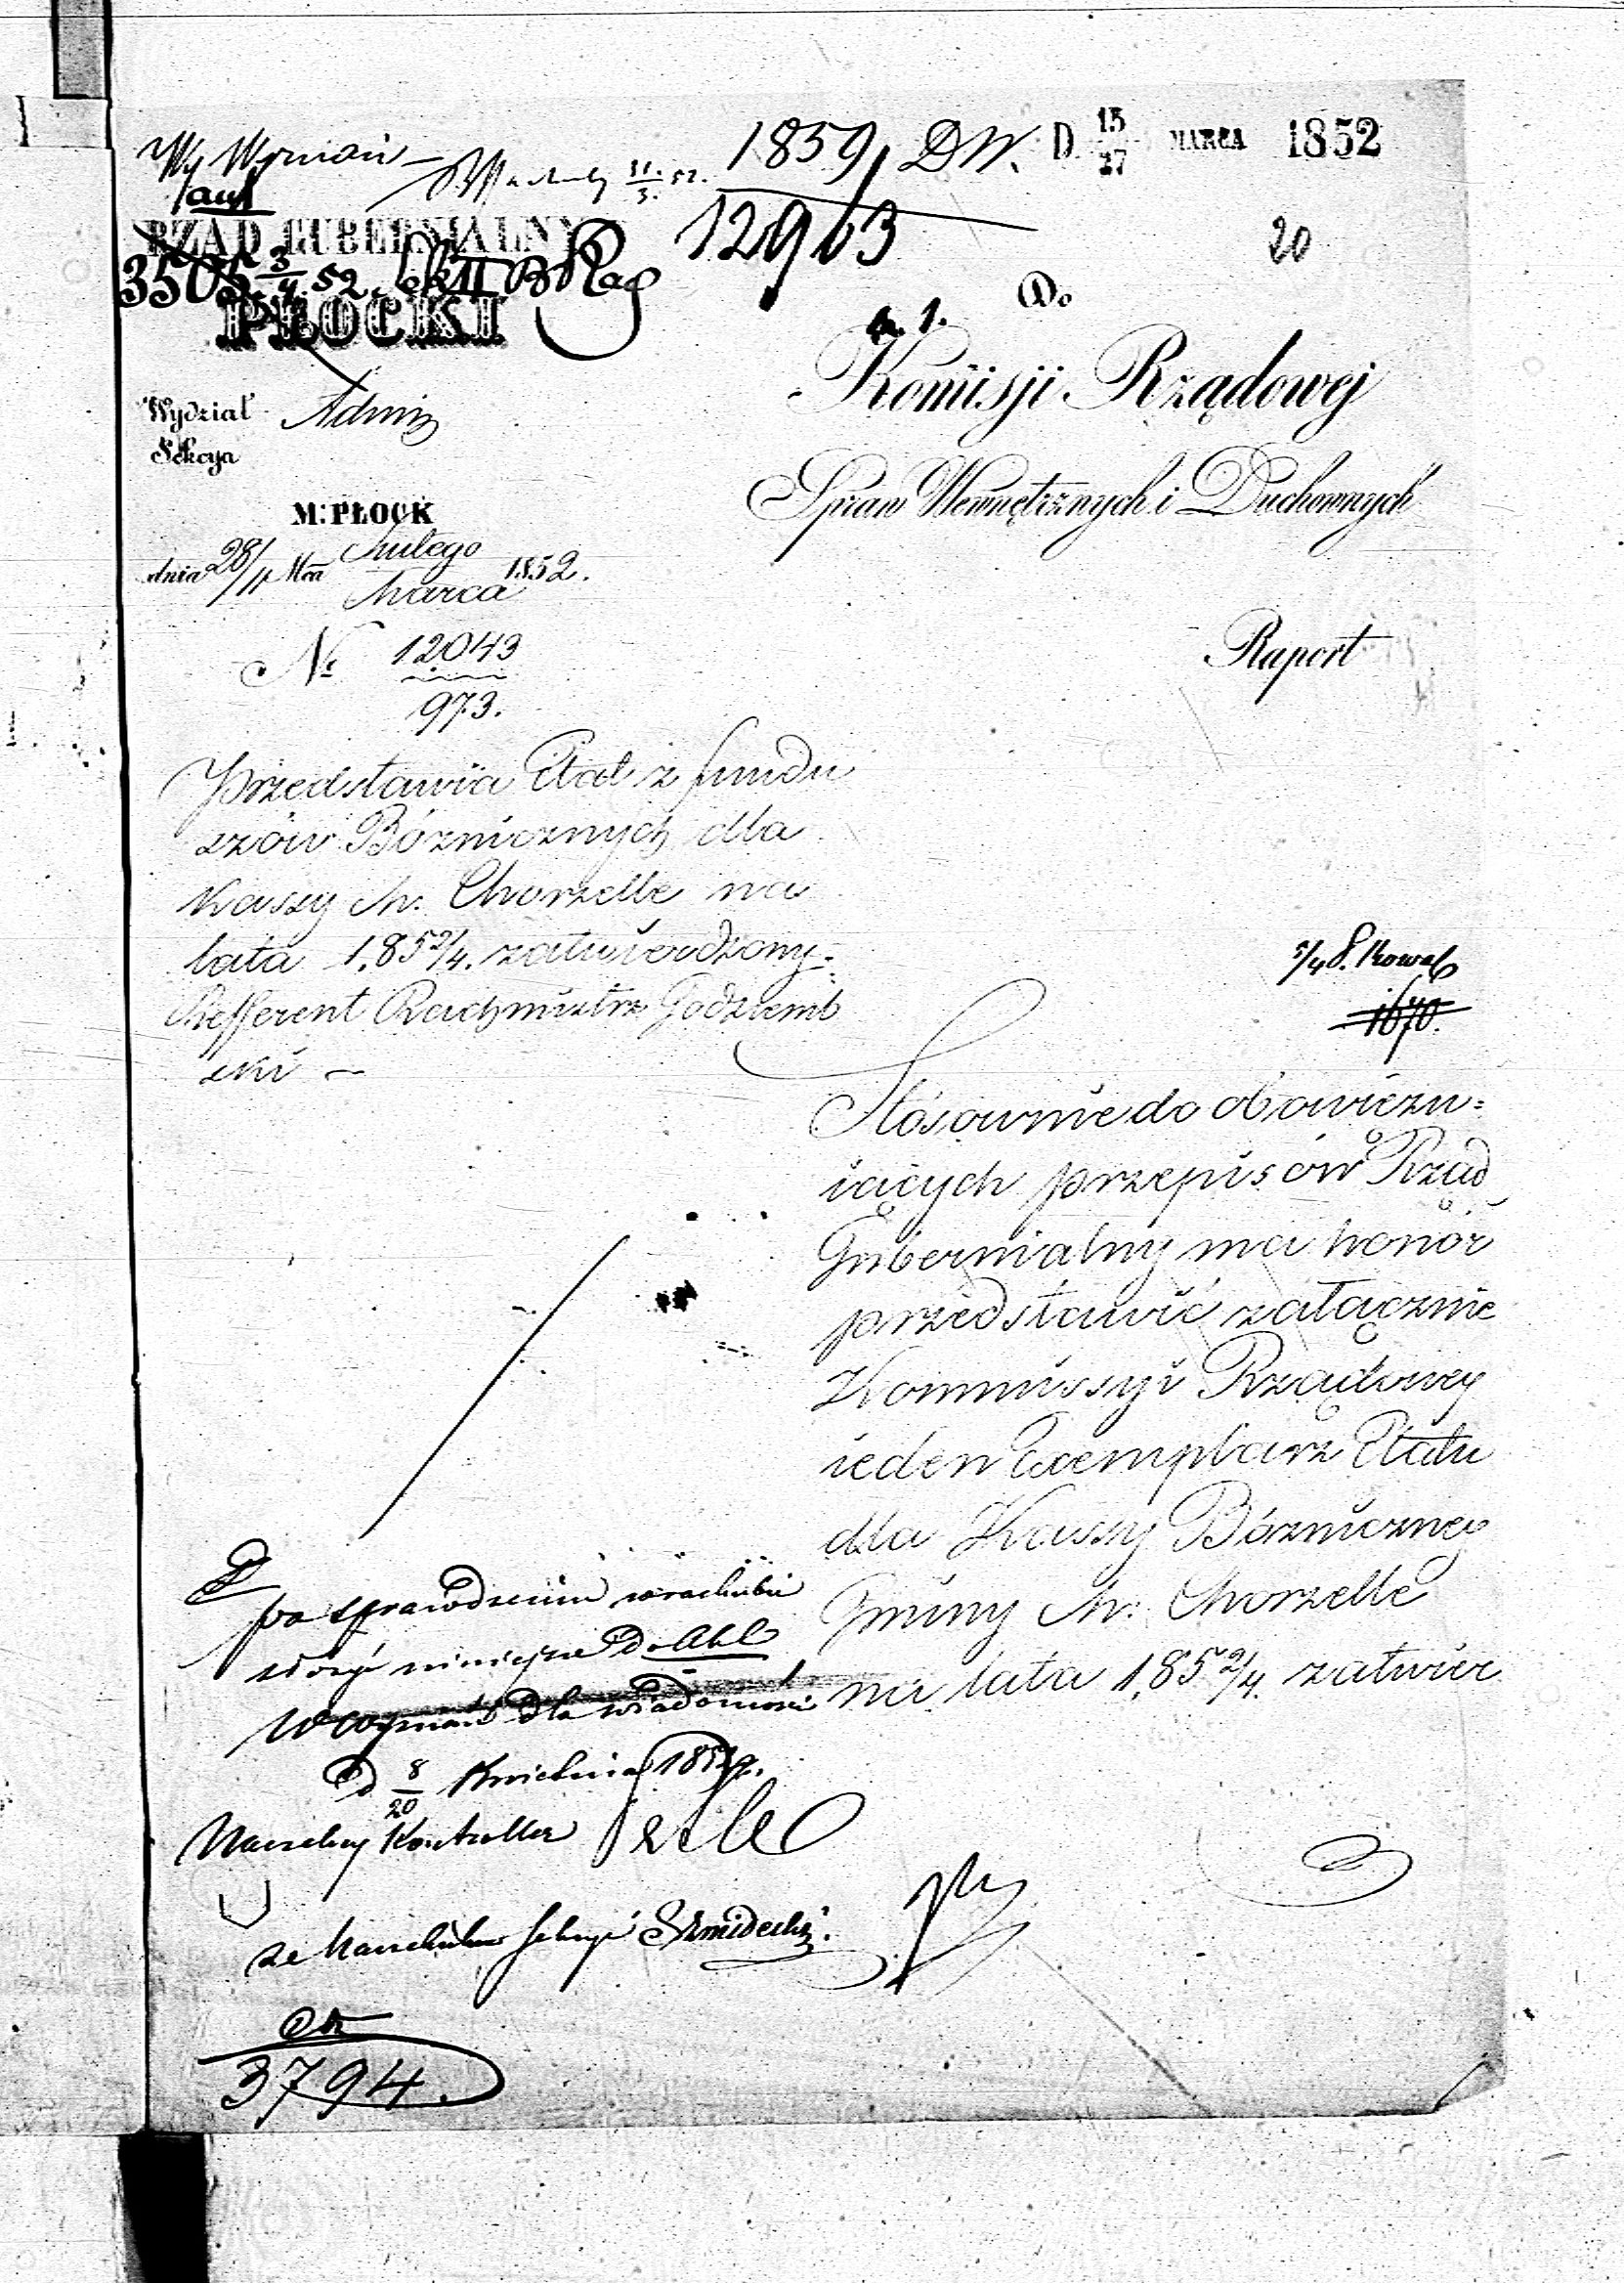 1859 DW. D. 15/27 MARCA 1852
12903
20
RZĄD GUBERNIALNY
3505 3/4 52
PŁOCKI
Do
Komisji Rządowej
Spraw Wewnętrznych i Duchownych
Wydział Admin
Sekcya
M: PŁOCK
dnia 28/11 Mca Lutego
Marca 1852.
Raport
No 12043
973.
Przedstawia Etat z fundu
szów Bóżnicznych dla
Kassy M. Chorzelle na
lata 1852/4. zatwierdzony.
Refferent Rachmistrz Godziemb
ski
1670.
Stósownie do obowiązu=
iących przepisów Rząd
Gubernialny ma honor
przedstawić załącznie
Kommissyi Rządowey
ieden Exemplarz Etatu
dla Kassy Bóżniczney
Gminy M: Chorzelle
na lata 1852/4. zatwier
po sprawdzeniu w rachubie
złożyć niniejsze do Akt
dla wiadomości
D 8/20 Kwietnia 1852 r.
Naczelny Kontroller
za Naczelnika Sekcyi Szmidecki.
3794.